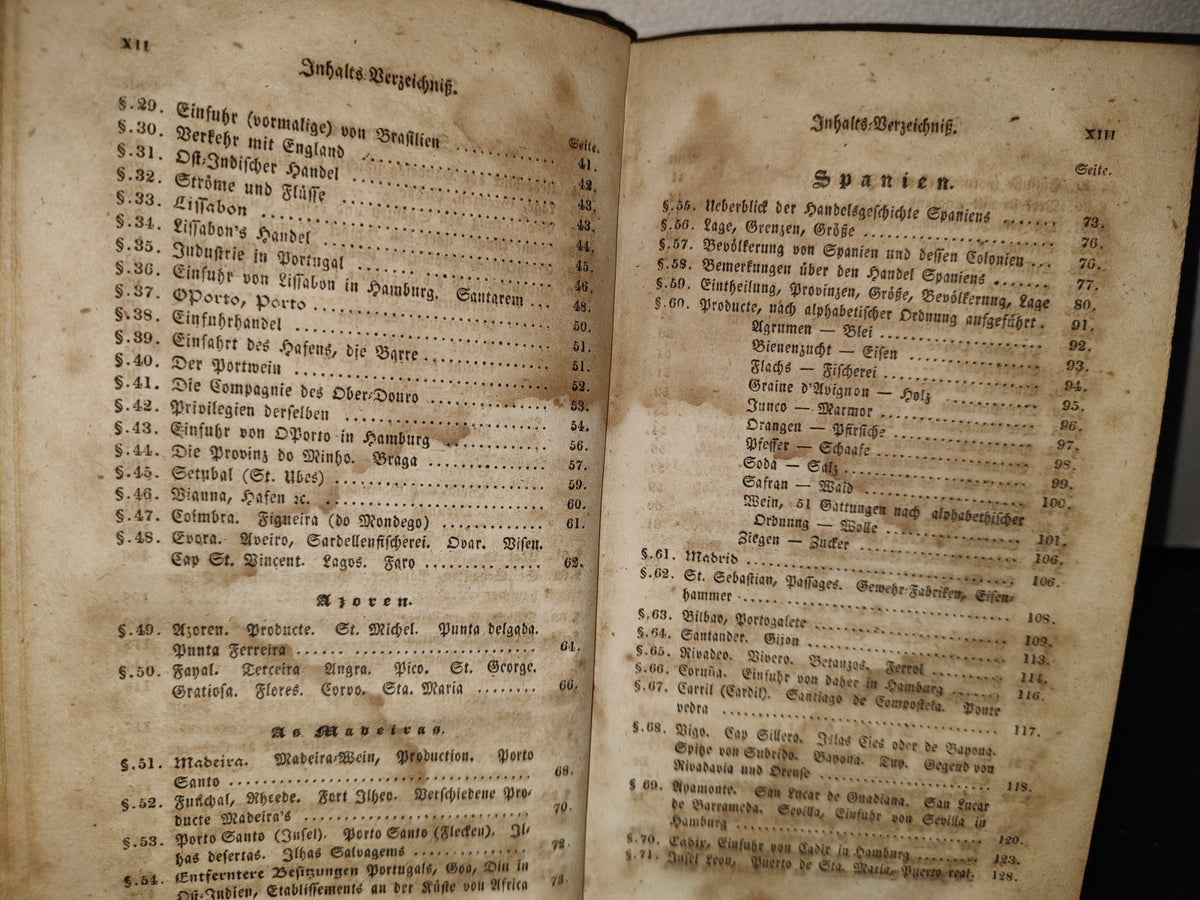 XII
Inhalts-Verzeichniß.
Seite.
§.29. Einfuhr (vormalige) von Brasilien ............ 41.
§.30. Verkehr mit England ............ 42.
§.31. Ost-Indischer Handel ............ 43.
§.32. Ströme und Flüsse ............ 43.
§.33. Lissabon ............ 44.
§.34. Lissabon's Handel ............ 45.
§.35. Industrie in Portugal ............ 46.
§.36. Einfuhr von Lissabon in Hamburg. Santarem ... 48.
§.37. OPorto, Porto ............ 50.
§.38. Einfuhrhandel ............ 51.
§.39. Einfahrt des Hafens, die Barre ............ 51.
§.40. Der Portwein ............ 52.
§.41. Die Compagnie des Ober-Douro ............ 53.
§.42. Privilegien derselben ............ 54.
§.43. Einfuhr von OPorto in Hamburg ............ 56.
§.44. Die Provinz do Minho. Braga ............ 57.
§.45. Setubal (St. Ubes) ............ 59.
§.46. Vianna, Hafen ꝛc. ............ 60.
§.47. Coimbra. Figueira (do Mondego) ............ 61.
§.48. Evora. Aveiro, Sardellenfischerei. Ovar. Visen.
Cap St. Vincent. Lagos. Faro ............ 62.
Azoren.
§.49. Azoren. Producte. St. Michel. Punta delgada.
Punta Ferreira ............ 64.
§.50. Fayal. Terceira Angra. Pico. St. George.
Gratiosa. Flores. Corvo. Sta. Maria ........ 66.
As Madeiras.
§.51. Madeira. Madeira-Wein, Production. Porto
Santo ............ 68.
§.52. Funchal, Rheede. Fort Ilheo. Verschiedene Pro-
ducte Madeira's ............ 70.
§.53. Porto Santo (Insel). Porto Santo (Flecken). Il-
has desertas. Ilhas Salvagems ............ 72.
§.54. Entferntere Besitzungen Portugals, Goa, Diu in
Ost-Indien, Etablissements an der Küste von Africa 73.
Inhalts-Verzeichniß.
XIII
Seite.
Spanien.
§.55. Ueberblick der Handelsgeschichte Spaniens ....... 73.
§.56. Lage, Grenzen, Größe ............ 76.
§.57. Bevölkerung von Spanien und dessen Colonien ... 76.
§.58. Bemerkungen über den Handel Spaniens ....... 77.
§.59. Eintheilung, Provinzen, Größe, Bevölkerung, Lage 80.
§.60. Producte, nach alphabetischer Ordnung aufgeführt . 91.
Agrumen — Blei ............ 92.
Bienenzucht — Eisen ............ 93.
Flachs — Fischerei ............ 94.
Graine d'Avignon — Holz ............ 95.
Junco — Marmor ............ 96.
Orangen — Pfirsiche ............ 97.
Pfeffer — Schaafe ............ 98.
Soda — Salz ............ 99.
Safran — Waid ............ 100.
Wein, 51 Gattungen nach alphabethischer
Ordnung — Wolle ............ 101.
Ziegen — Zucker ............ 106.
§.61. Madrid ............ 106.
§.62. St. Sebastian, Passages. Gewehr-Fabriken, Eisen-
hammer ............ 108.
§.63. Bilbao, Portogalete ............ 109.
§.64. Santander. Gijon ............ 113.
§.65. Rivadeo. Vivero. Betanzos. Ferrol ............ 114.
§.66. Coruña. Einfuhr von daher in Hamburg ....... 116.
§.67. Carril (Cardil). Santiago de Compostela. Ponte
vedra ............ 117.
§.68. Vigo. Cap Sillero. Islas Cies oder de Bayona.
Spitze von Subrido. Bayona. Tuy. Gegend von
Rivadavia und Orense ............ 118.
§ 69. Ayamonte. San Lucar de Guadiana. San Lucar
de Barrameda. Sevilla, Einfuhr von Sevilla in
Hamburg ............ 120.
§.70. Cadix, Einfuhr von Cadix in Hamburg ......... 123.
§.71. Insel Leon, Puerto de Sta. Maria, Puerto real. 128.